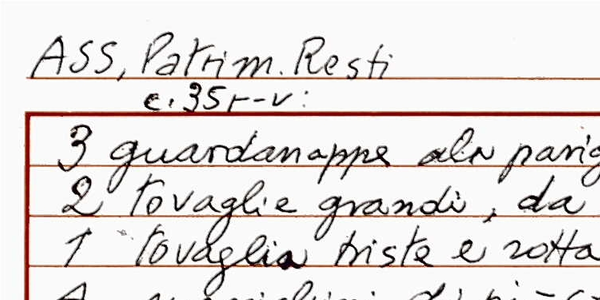 ASS, Patrim. Resti
c. 35r-v:
3 guardanappe ala parig
2 tovaglie grandi, da
1 tovaglia triste e rotta